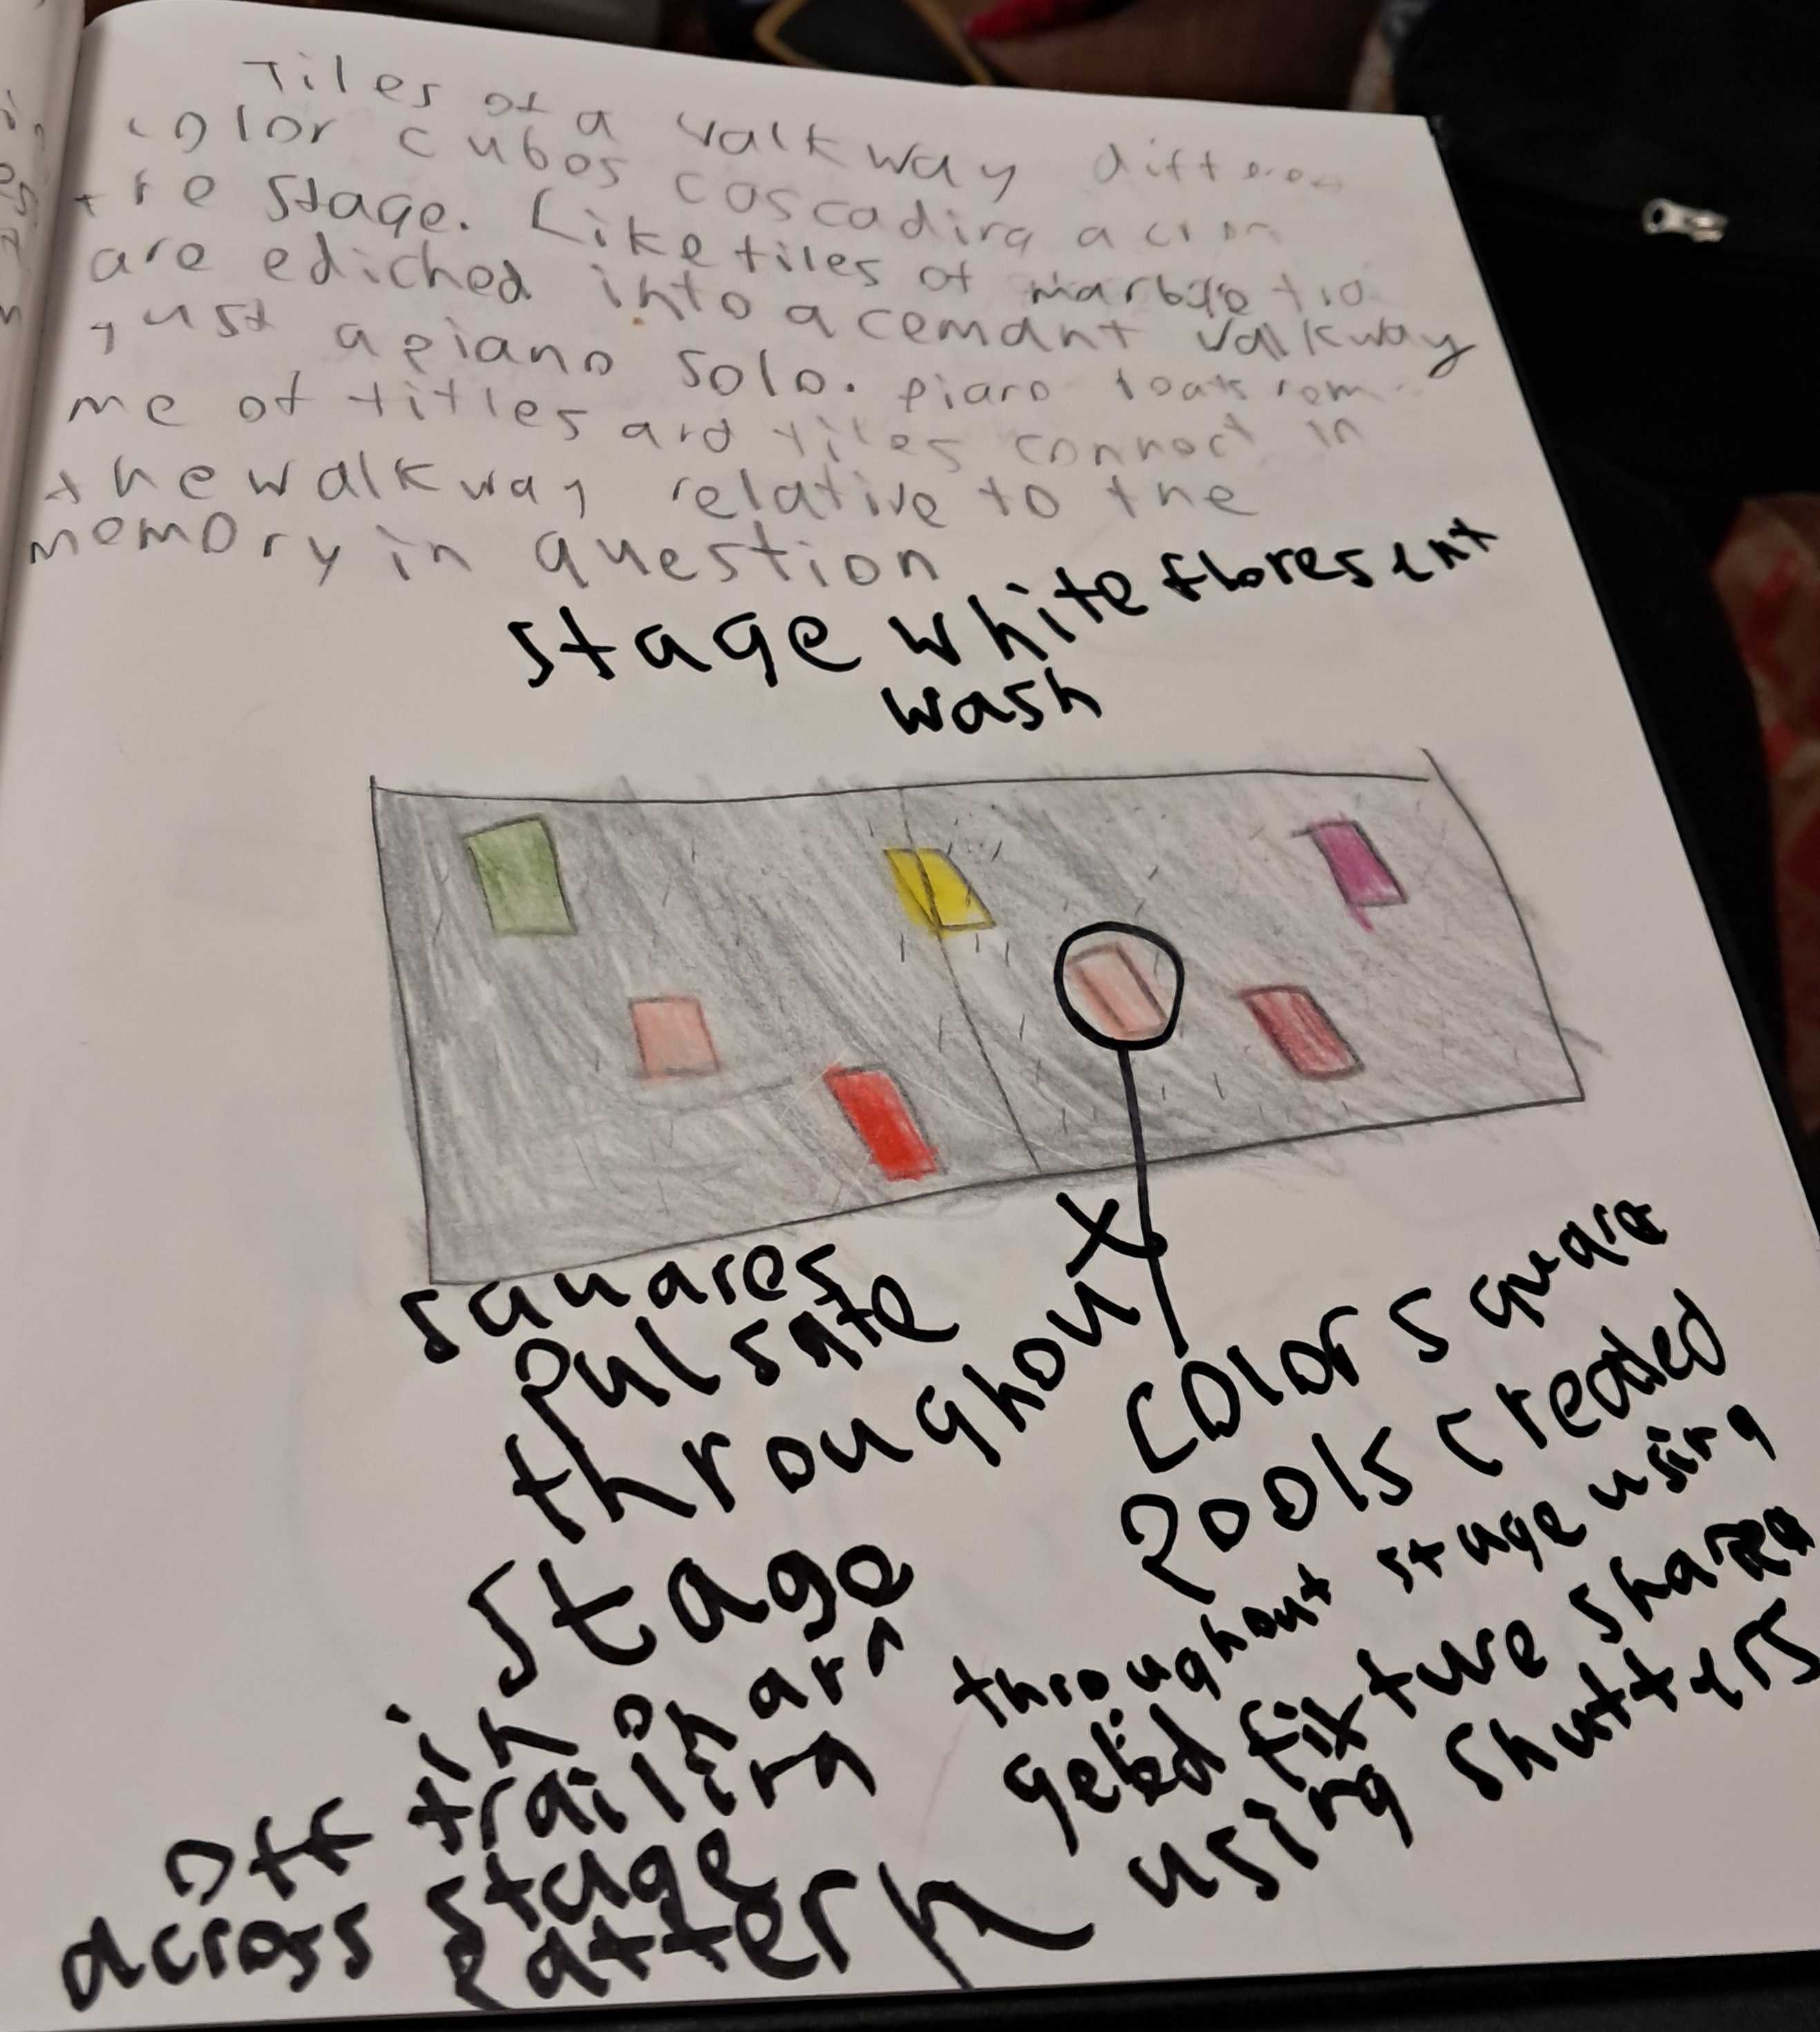 Tiles of a walkway differen
color cubos cascading acros
the stage. Like tiles of marble
are ediched into a cemant walkway
just a piano solo. piano
me of titles and tiles connect in
the walkway relative to the
memory in question
stage white floresent
wash
squares
pulsate
throughout
stage
in
off trailing
across stage
pattern
color square
pools created
throughout stage using
geled fixture shaped
using shutters